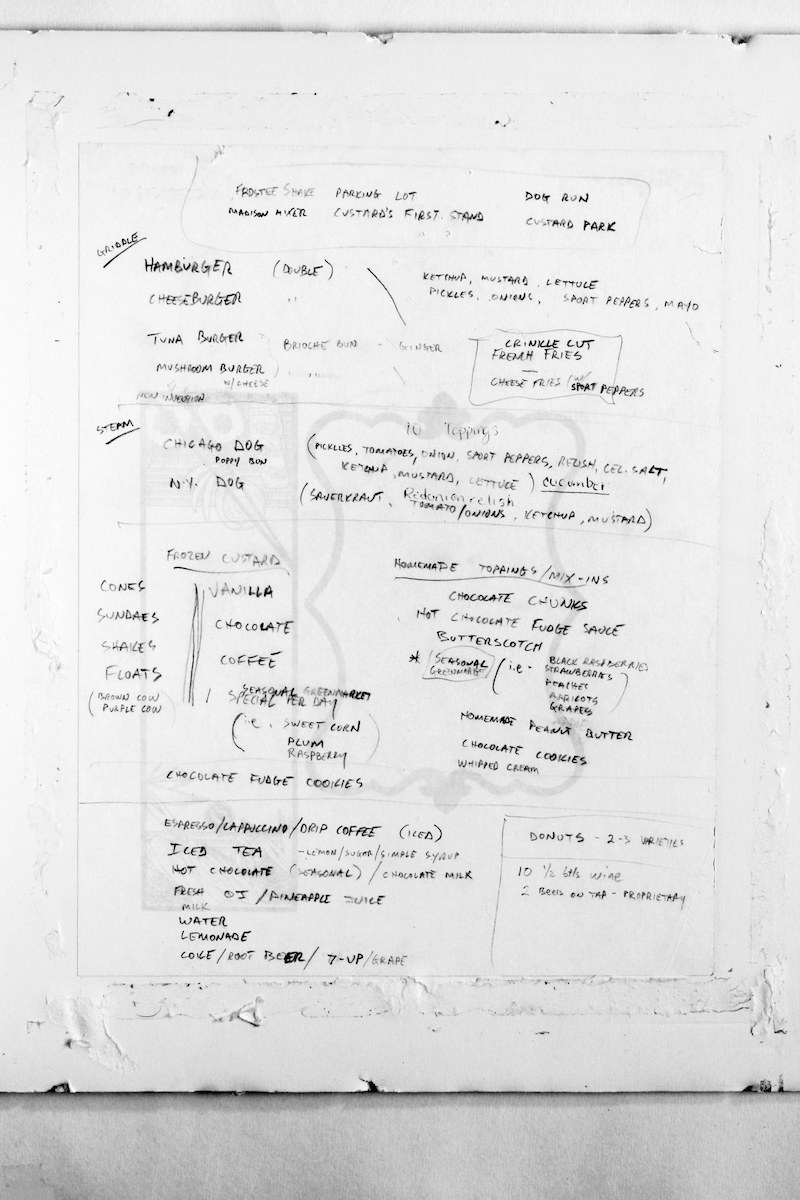 FROSTEE SHAKE PARKING LOT DOG RUN
MADISON MIXER CUSTARD'S FIRST STAND CUSTARD PARK
GRIDDLE
HAMBURGER (DOUBLE)
CHEESEBURGER "
KETCHUP, MUSTARD, LETTUCE
PICKLES, ONIONS, SPORT PEPPERS, MAYO
TUNA BURGER BRIOCHE BUN - GINGER
MUSHROOM BURGER
W/ CHEESE
CRINKLE CUT
FRENCH FRIES
CHEESE FRIES (W/ SPORT PEPPERS
STEAM
10 Toppings
CHICAGO DOG (PICKLES, TOMATOES, ONION, SPORT PEPPERS, RELISH, CEL. SALT,
POPPY BUN
KETCHUP, MUSTARD, LETTUCE) cucumber
N.Y. DOG (SAUERKRAUT, Red onion relish
TOMATO/ONIONS, KETCHUP, MUSTARD)
FROZEN CUSTARD
CONES
SUNDAES
SHAKES
FLOATS
(BROWN COW
PURPLE COW
VANILLA
CHOCOLATE
COFFEE
SEASONAL GREENMARKET
1 SPECIAL PER DAY
(i.e. SWEET CORN
PLUM
RASPBERRY)
CHOCOLATE FUDGE COOKIES
HOMEMADE TOPPINGS/MIX-INS
CHOCOLATE CHUNKS
HOT CHOCOLATE FUDGE SAUCE
BUTTERSCOTCH
* SEASONAL (i.e. BLACK RASPBERRIES
GREENMARKET STRAWBERRIES
PEACHES
APRICOTS
GRAPES)
HOMEMADE PEANUT BUTTER
CHOCOLATE COOKIES
WHIPPED CREAM
ESPRESSO/CAPPUCCINO/DRIP COFFEE (ICED)
ICED TEA - LEMON/SUGAR/SIMPLE SYRUP
HOT CHOCOLATE (SEASONAL) / CHOCOLATE MILK
FRESH OJ / PINEAPPLE JUICE
MILK
WATER
LEMONADE
COKE/ROOT BEER/ 7-UP/GRAPE
DONUTS - 2-3 VARIETIES
10 1/2 btls wine
2 BEERS ON TAP - PROPRIETARY